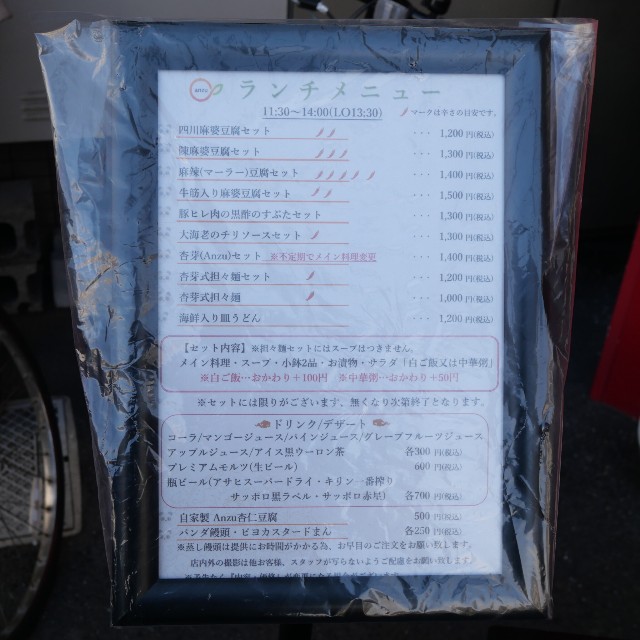 ランチメニュー
11:30～14:00(LO13:30) マークは辛さの目安です。
四川麻婆豆腐セット ・・・ 1,200円(税込)
陳麻婆豆腐セット ・・・ 1,300円(税込)
麻辣(マーラー)豆腐セット ・・・ 1,400円(税込)
牛筋入り麻婆豆腐セット ・・・ 1,500円(税込)
豚ヒレ肉の黒酢のすぶたセット ・・・ 1,300円(税込)
大海老のチリソースセット ・・・ 1,300円(税込)
杏芽(Anzu)セット ※不定期でメイン料理変更 ・・・ 1,400円(税込)
杏芽式担々麺セット ・・・ 1,200円(税込)
杏芽式担々麺 ・・・ 1,000円(税込)
海鮮入り皿うどん ・・・ 1,200円(税込)
【セット内容】※担々麺セットにはスープはつきません。
メイン料理・スープ・小鉢2品・お漬物・サラダ「白ご飯又は中華粥」
※白ご飯…おかわり＋100円 ※中華粥…おかわり＋50円
※セットには限りがございます、無くなり次第終了となります。
ドリンク/デザート
コーラ/マンゴージュース/パインジュース/グレープフルーツジュース
アップルジュース/アイス黒ウーロン茶 各300円(税込)
プレミアムモルツ(生ビール) 600円(税込)
瓶ビール(アサヒスーパードライ・キリン一番搾り
サッポロ黒ラベル・サッポロ赤星) 各700円(税込)
自家製 Anzu杏仁豆腐 500円(税込)
パンダ饅頭・ピヨカスタードまん 各250円(税込)
※蒸し饅頭は提供にお時間がかかる為、お早目のご注文をお願い致します。
店内外の撮影は他お客様、スタッフが写らないようご配慮をお願い致します。